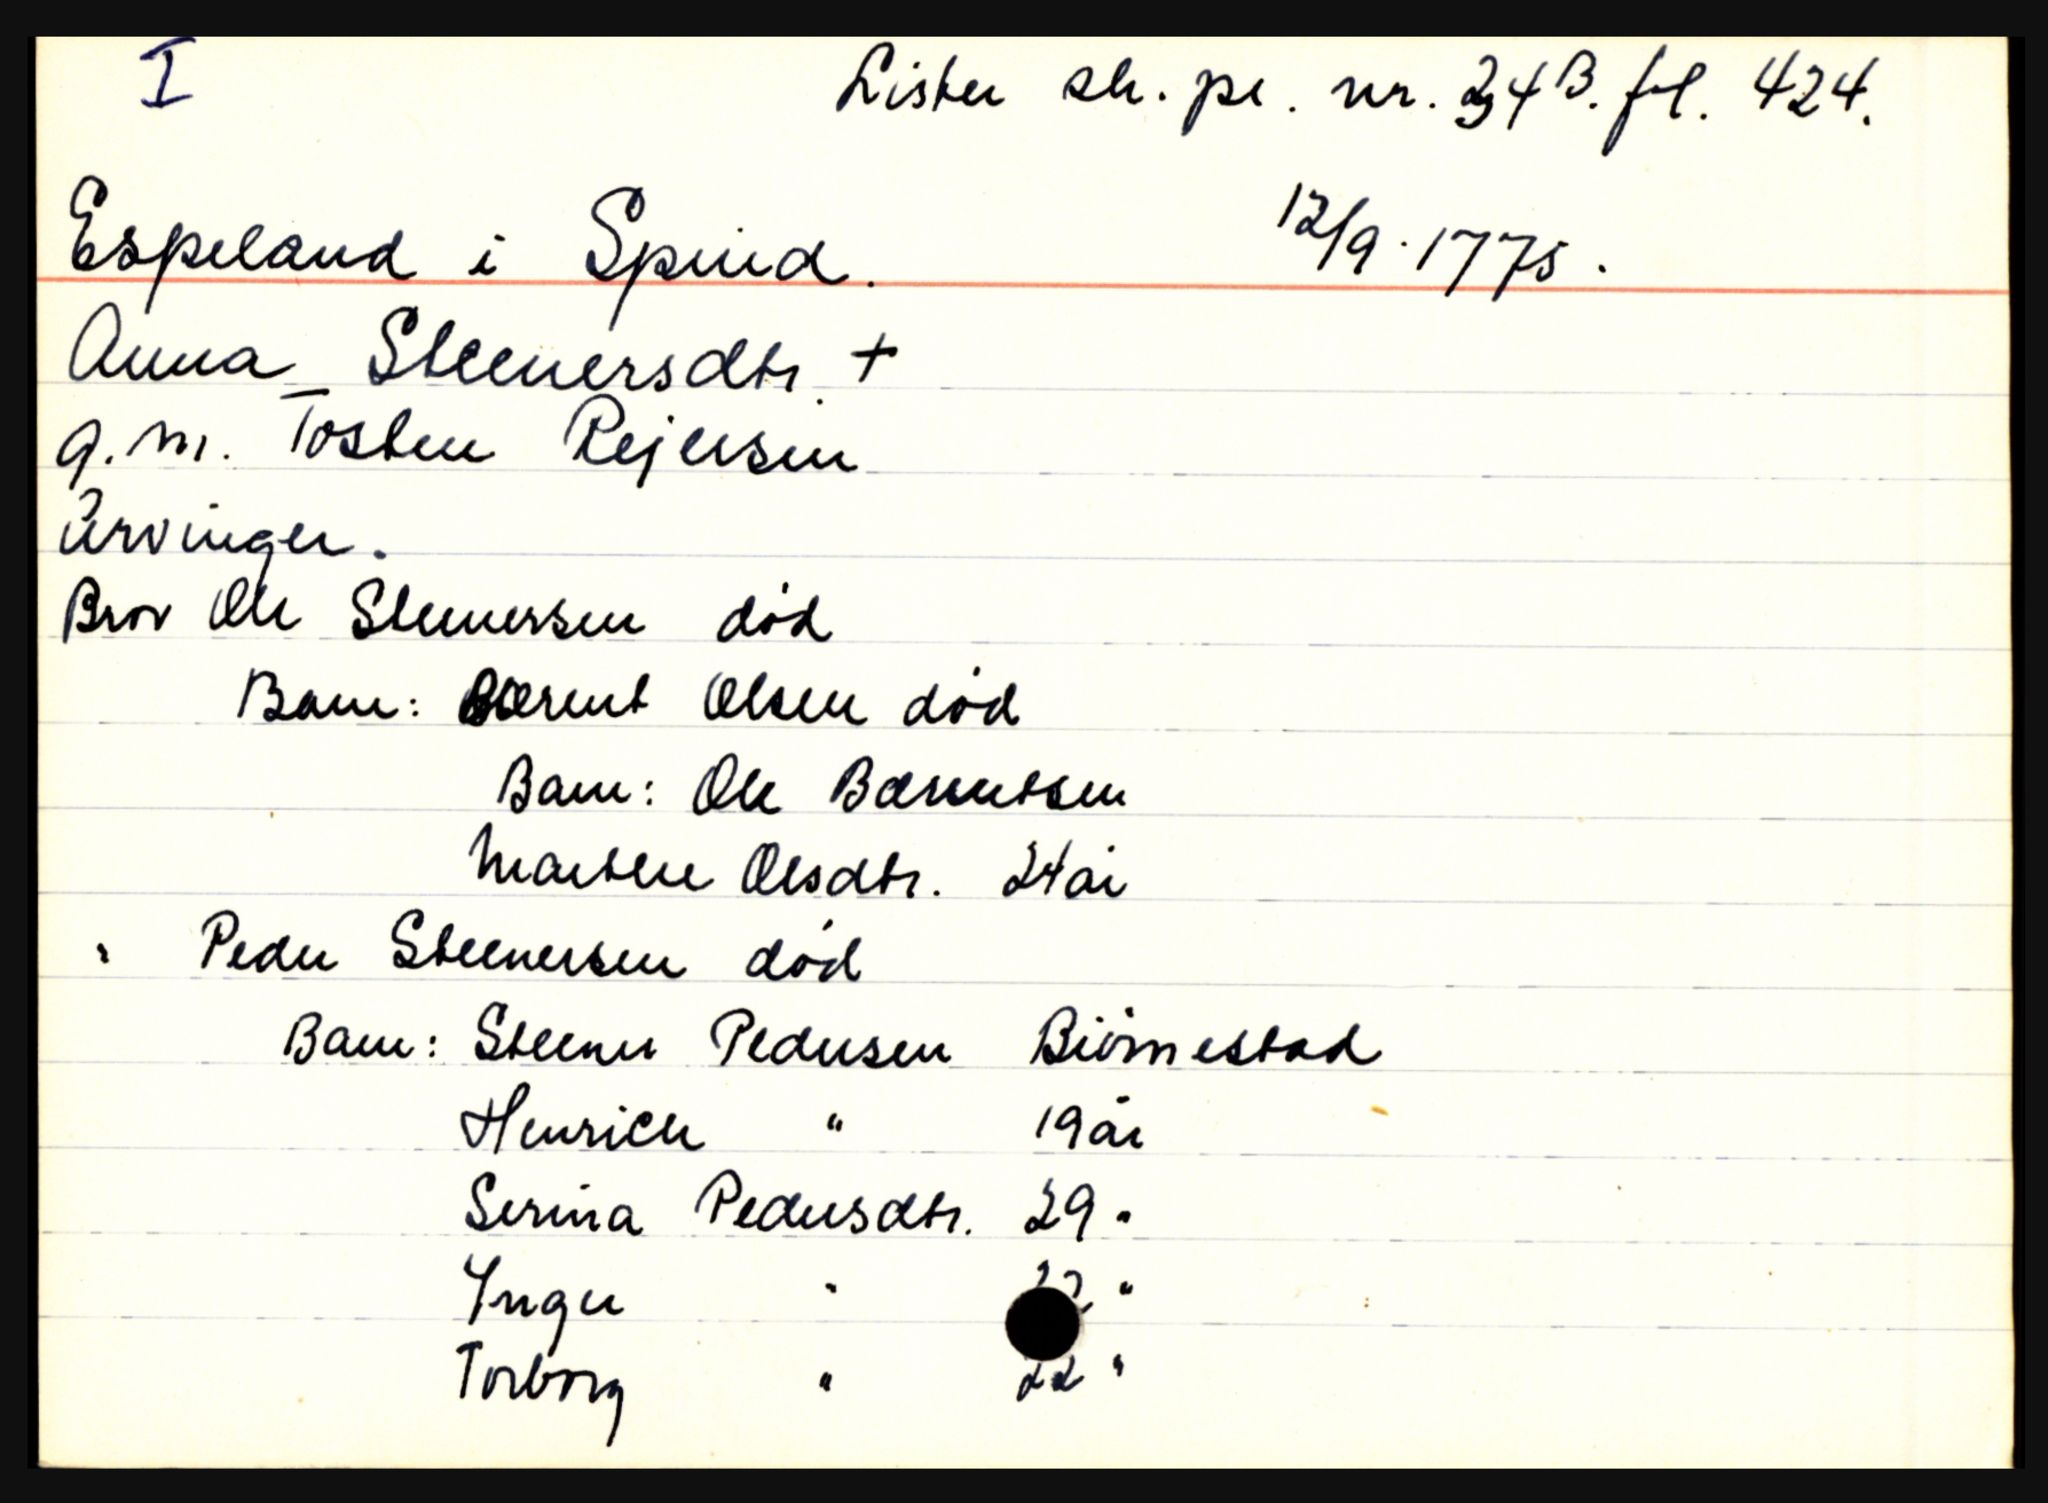 I Lister sk. pr. nr. 34B. fol. 424.
Espeland i Spind. 12/9.1775.
Anna Steenersdtr. +
g.m. Tosten Rejersen
Arvinger.
Bror Ole Steenersen død
Barn: Bærent Olsen død
Barn: Ole Bærentsen
Marthe Olsdtr. 24 år
" Peder Steenersen død
Barn: Steener Pedersen Biörnestad
Henrich " 19 år
Serina Pedersdtr. 29 "
Ynger " "
Torborg " 22 "